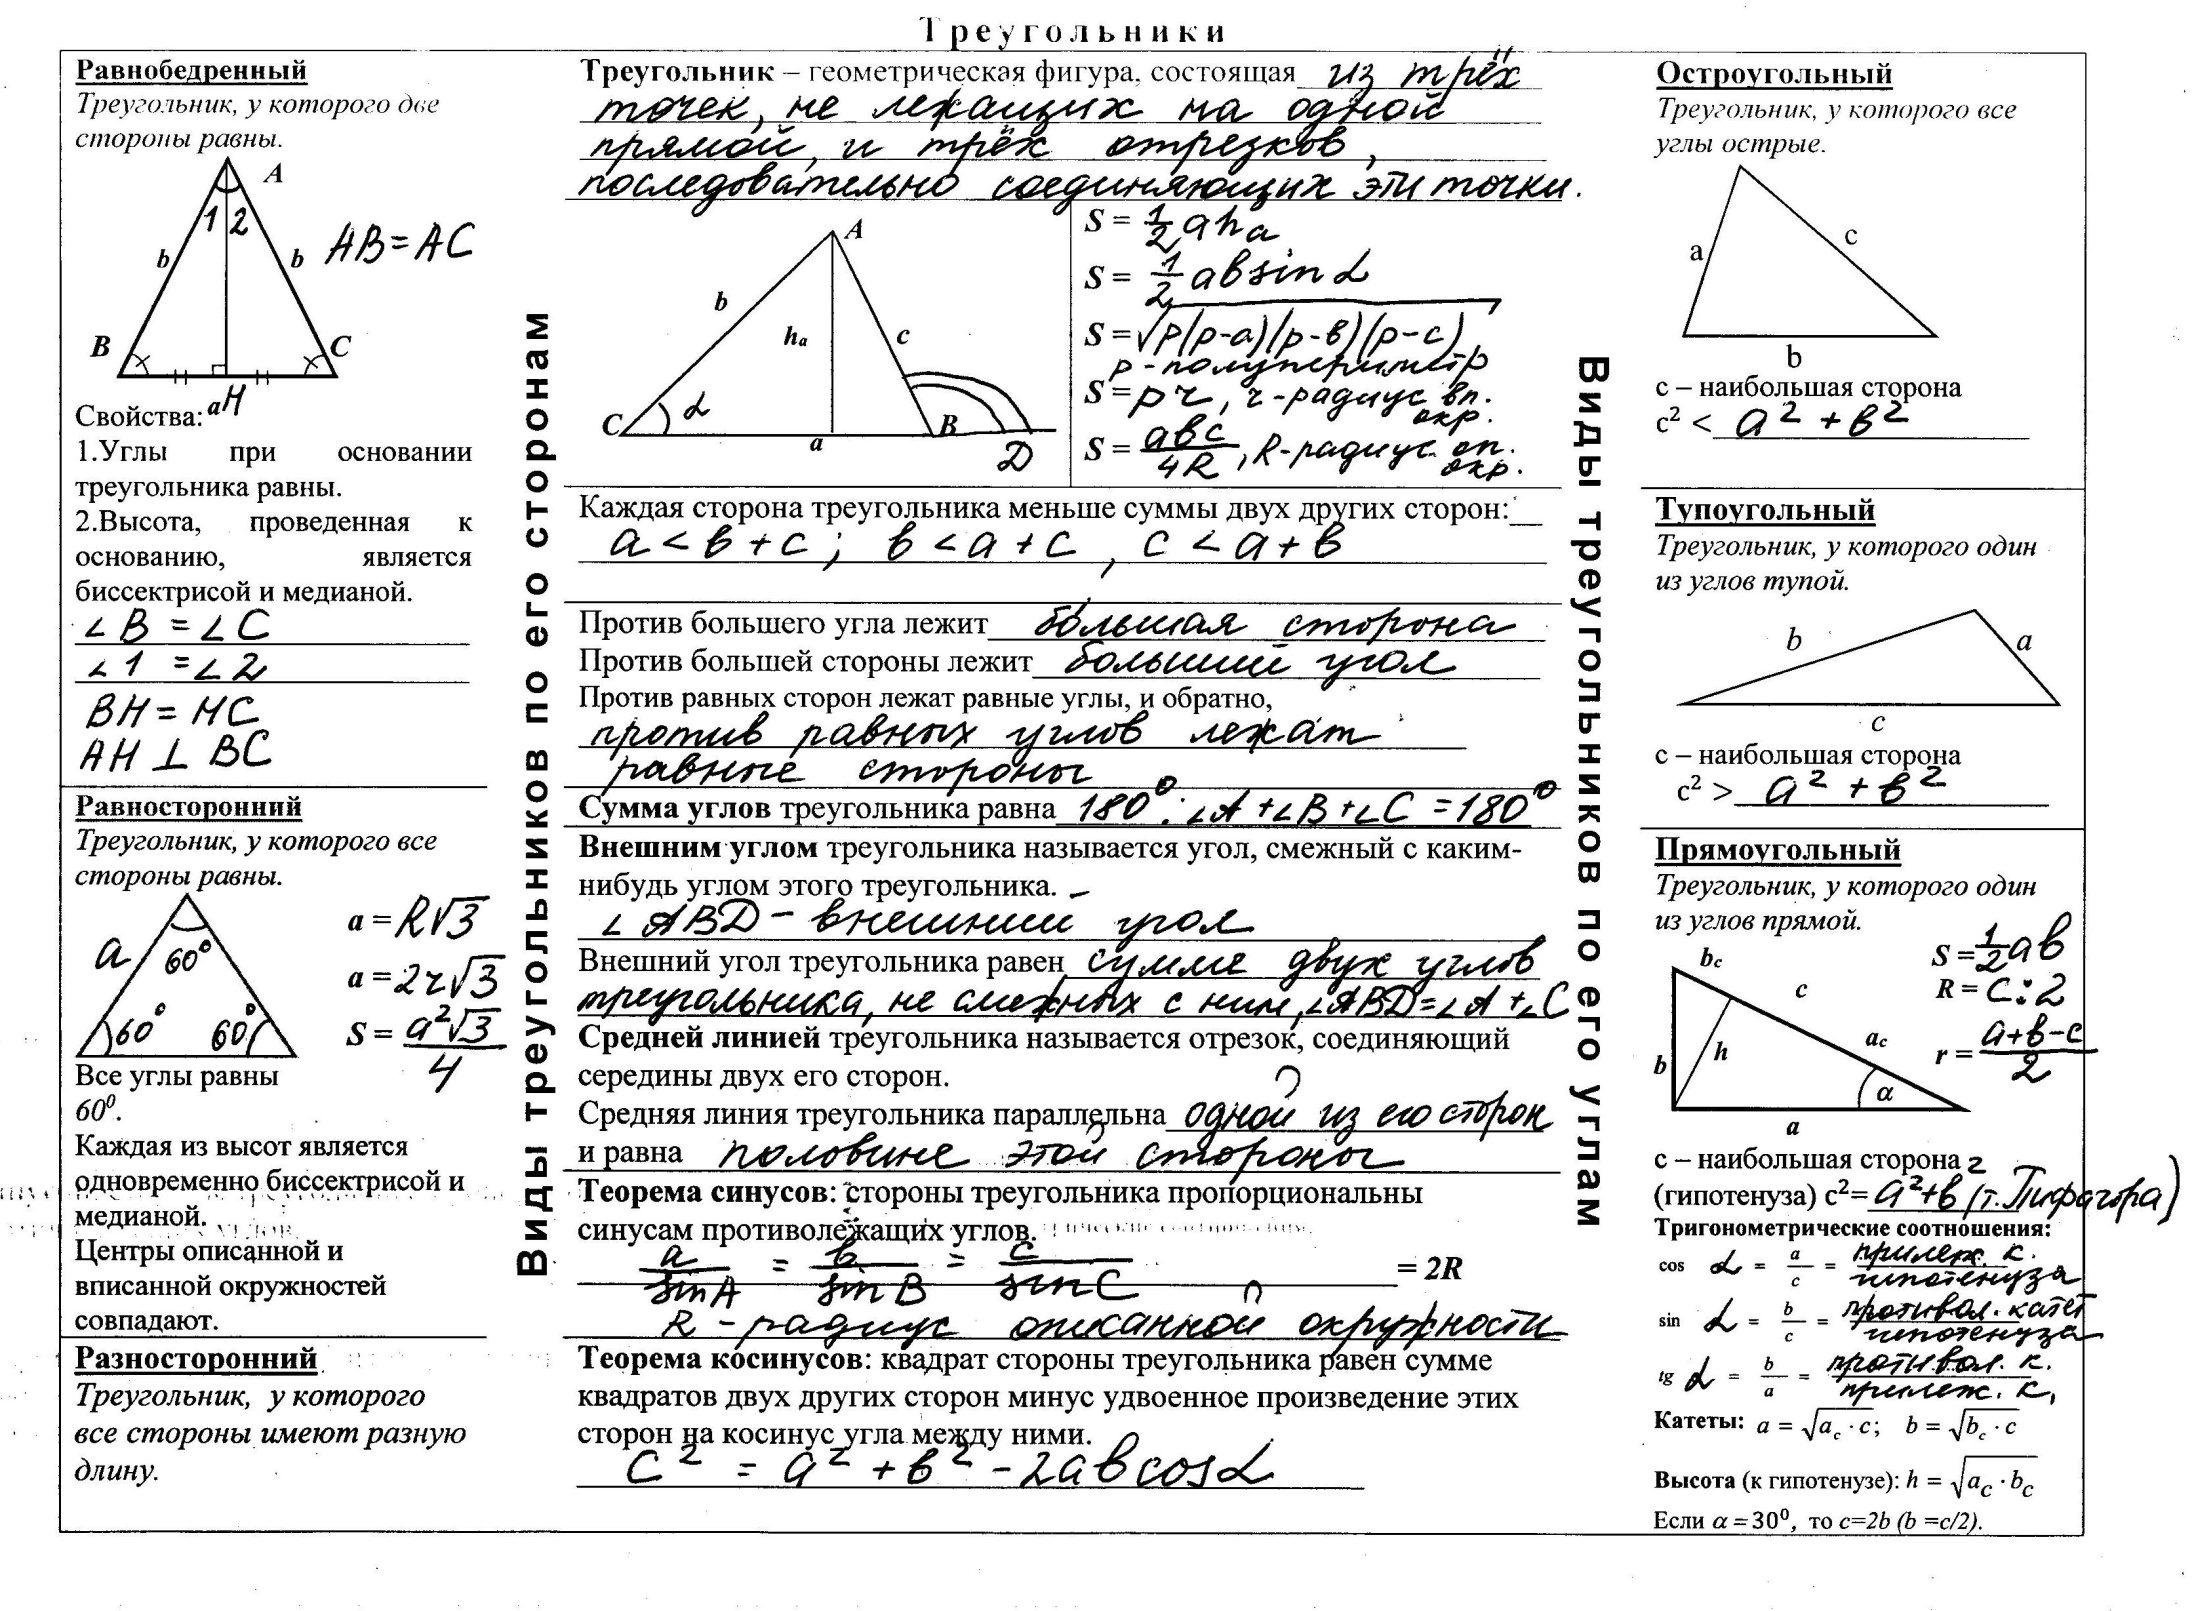 Треугольники
Равнобедренный
Треугольник, у которого две
стороны равны.
A
1 2
b b
AB = AC
B C
aH
Свойства:
1.Углы при основании
треугольника равны.
2.Высота, проведенная к
основанию, является
биссектрисой и медианой.
∠B = ∠C
∠1 = ∠2
BH = HC
AH ⊥ BC
Равносторонний
Треугольник, у которого все
стороны равны.
a
60°
60° 60°
a = R√3
a = 2r√3
S = a²√3/4
Все углы равны
60⁰.
Каждая из высот является
одновременно биссектрисой и
медианой.
Центры описанной и
вписанной окружностей
совпадают.
Разносторонний
Треугольник, у которого
все стороны имеют разную
длину.
Виды треугольников по его сторонам
Треугольник – геометрическая фигура, состоящая из трёх
точек, не лежащих на одной
прямой, и трёх отрезков,
последовательно соединяющих эти точки.
A
b
hₐ
c
C α
a
B
D
S = ½ahₐ
S = ½ab sin α
S = √p(p-a)(p-b)(p-c)
p - полупериметр
S = pr, r-радиус вп.
окр.
S = abc/4R, R-радиус оп.
окр.
Каждая сторона треугольника меньше суммы двух других сторон:
a < b + c; b < a + c, c < a + b
Против большего угла лежит большая сторона
Против большей стороны лежит больший угол
Против равных сторон лежат равные углы, и обратно,
против равных углов лежат
равные стороны
Сумма углов треугольника равна 180°: ∠A + ∠B + ∠C = 180°
Внешним углом треугольника называется угол, смежный с каким-
нибудь углом этого треугольника. –
∠ABD – внешний угол
Внешний угол треугольника равен сумме двух углов
треугольника, не смежных с ним, ∠ABD = ∠A + ∠C
Средней линией треугольника называется отрезок, соединяющий
середины двух его сторон.
Средняя линия треугольника параллельна одной из его сторон
и равна половине этой стороны
Теорема синусов: стороны треугольника пропорциональны
синусам противолежащих углов.
a/sin A = b/sin B = c/sin C = 2R
R - радиус описанной окружности
Теорема косинусов: квадрат стороны треугольника равен сумме
квадратов двух других сторон минус удвоенное произведение этих
сторон на косинус угла между ними.
c² = a² + b² - 2ab cos α
Виды треугольников по его углам
Остроугольный
Треугольник, у которого все
углы острые.
a c
b
c – наибольшая сторона
c² < a² + b²
Тупоугольный
Треугольник, у которого один
из углов тупой.
b a
c
c – наибольшая сторона
c² > a² + b²
Прямоугольный
Треугольник, у которого один
из углов прямой.
b_c
c
a_c
b h
α
a
S = ½ab
R = c:2
r = a+b-c/2
c – наибольшая сторона
(гипотенуза) c² = a² + b² (т. Пифагора)
Тригонометрические соотношения:
cos α = a/c = прилеж. к./гипотенуза
sin α = b/c = противол. катет/гипотенуза
tg α = b/a = противол. к./прилеж. к.
Катеты: a = √a_c · c; b = √b_c · c
Высота (к гипотенузе): h = √a_c · b_c
Если α = 30⁰, то c=2b (b =c/2).